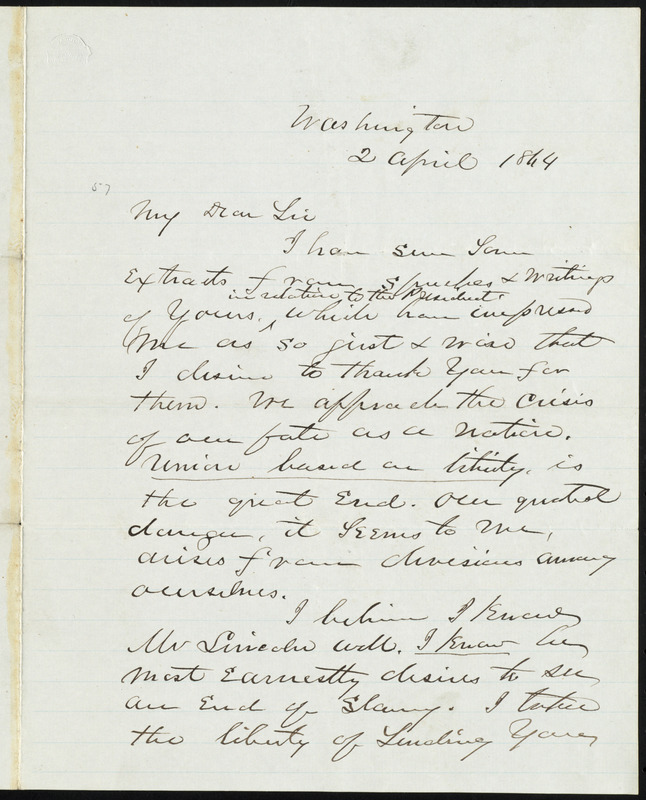 57
Washington
2 April 1864
My Dear Sir
I have seen Some
Extracts from Speeches & Writings
in relation to the President
of Yours, which have impressed
Me as so just & wise that
I desire to thank You for
them. We approach the crisis
of our fate as a Nation.
Union based on liberty, is
the great End. Our greatest
danger, it Seems to Me,
arises from divisions among
ourselves.
I believe I Know
Mr Lincoln well. I Know he
most Earnestly desires to see
an End of Slavery. I take
the liberty of Sending You